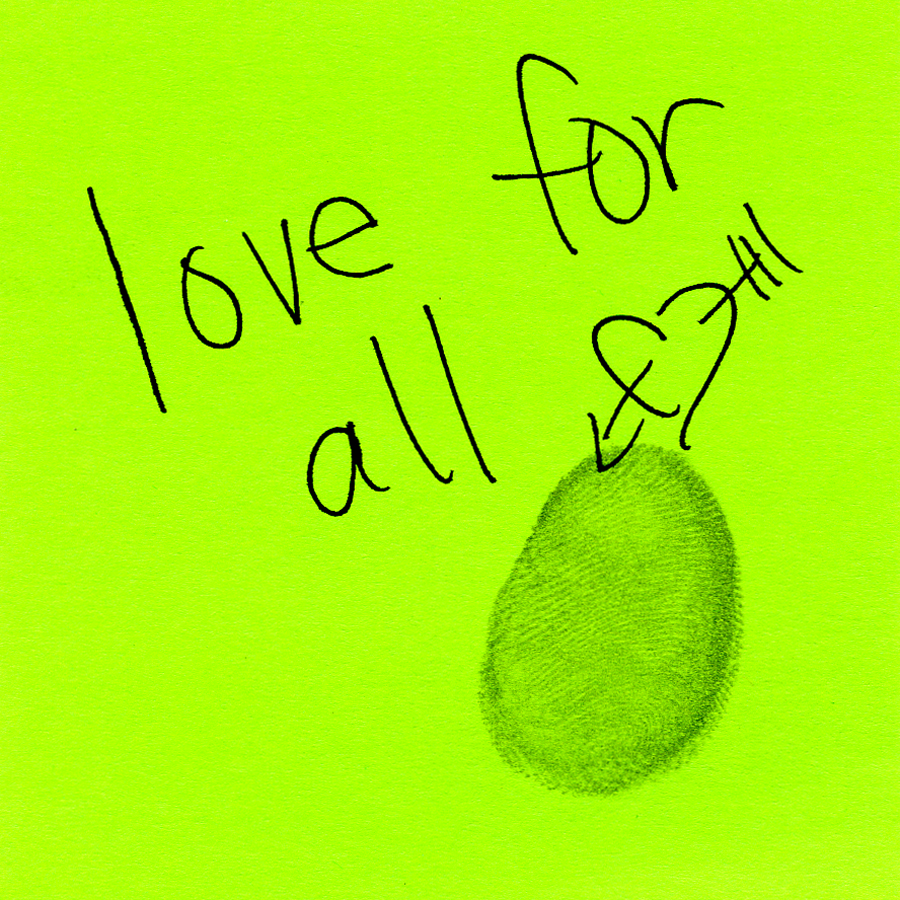 love for
all